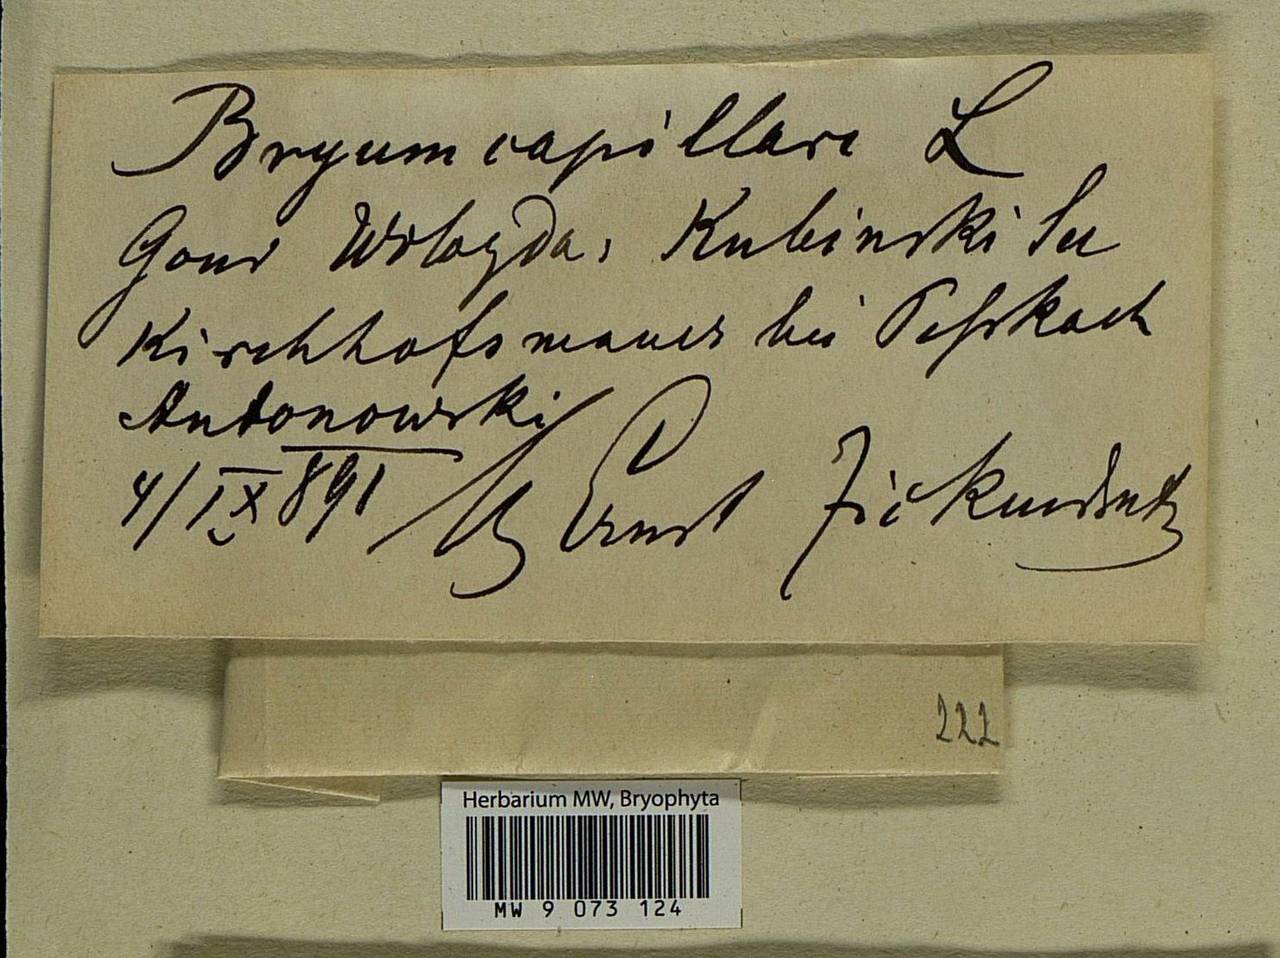 Bryum capillare L
Gouv Wologda, Kubinski See
Kirchhofsmauer bei
Antonowski
4/IX 891 Ernst Zickendrath
222
Herbarium MW, Bryophyta
MW 9 073 124